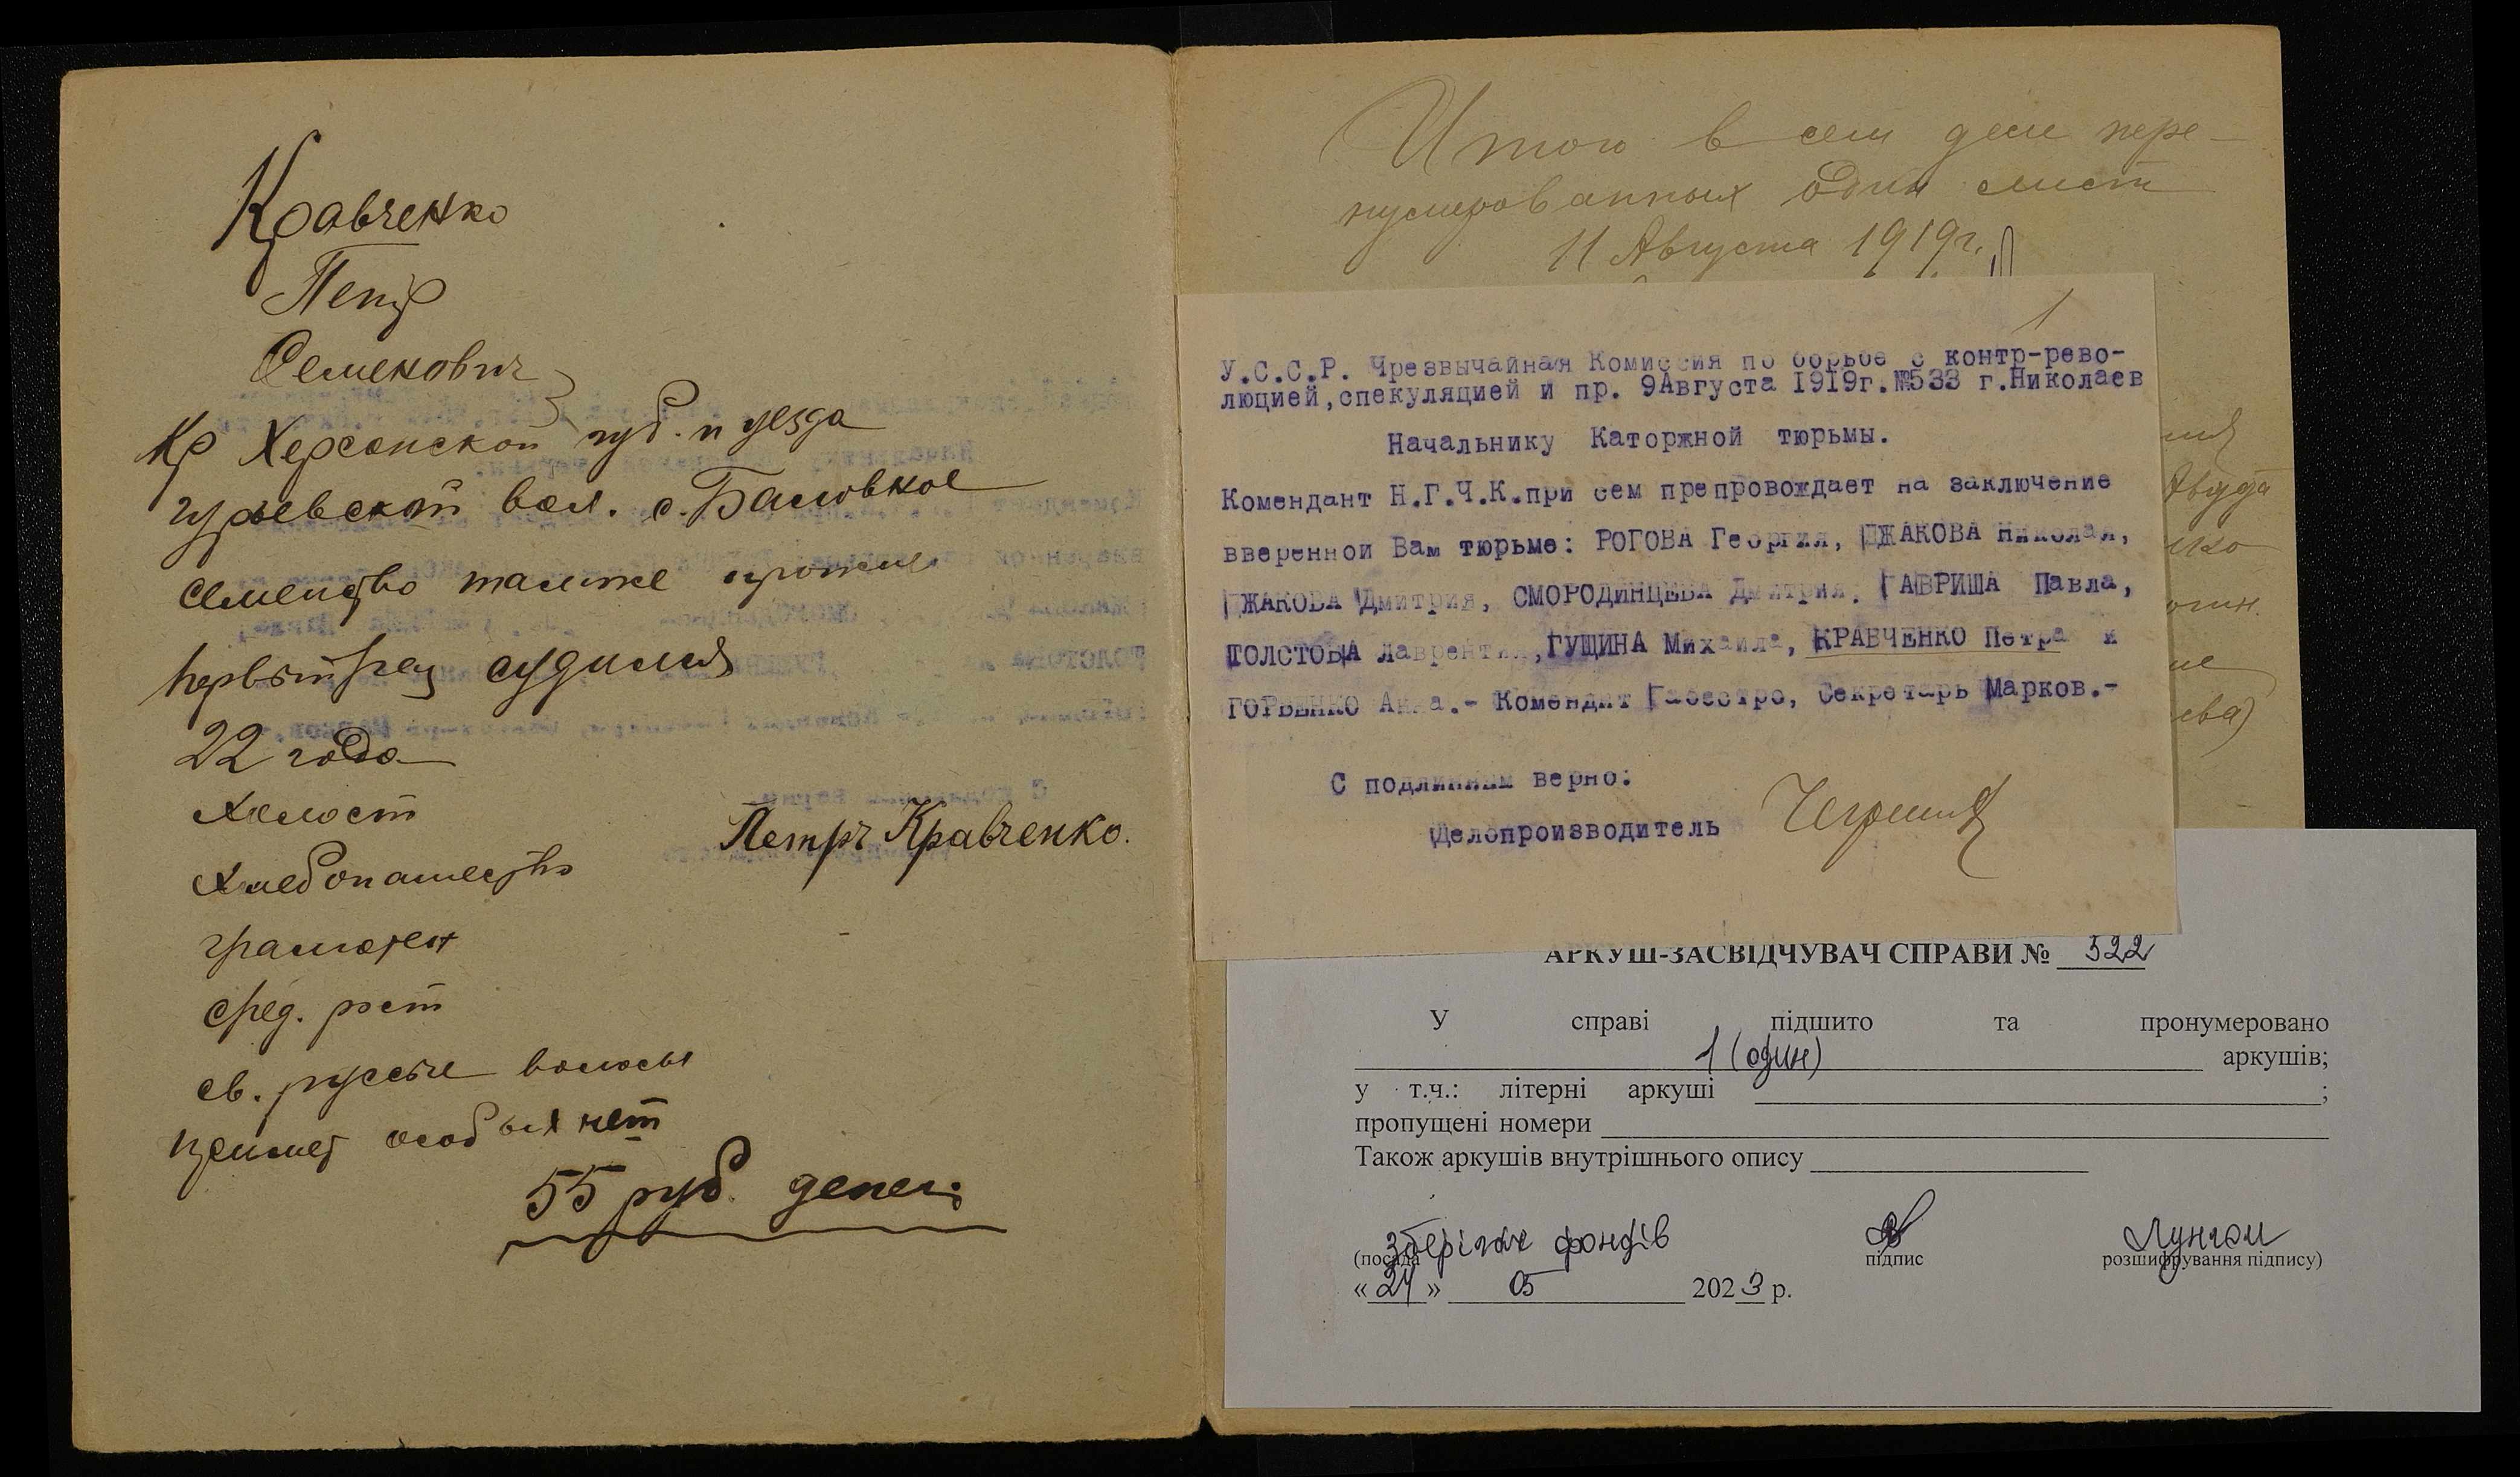 Кравченко
Петр
Семенович
Кр Херсонской губ. и уезда
гурьевской вол. с. Баловное
семейство также прожив
первый раз судился
22 года
холост
Петръ Кравченко.
хлебопашество
грамотен
сред. рост
св. русые волосы
примет особых нет
55 руб. денег.
Итого в сем деле пере-
нумерованных один лист
11 Августа 1919 г.
1
У.С.С.Р. Чрезвычайная Комиссия по борьбе с контр-рево-
люцией,спекуляцией и пр. 9Августа 1919г.№533 г.Николаев
Начальнику Каторжной тюрьмы.
Комендант Н.Г.Ч.К.при сем препровождает на заключение
вверенной Вам тюрьме: РОГОВА Георгия, ДЖАКОВА Николая,
ДЖАКОВА Дмитрия, СМОРОДИНЦЕВА Дмитрия, ГАВРИША Павла,
ТОЛСТОВА Лаврентия,ГУЩИНА Михаила, КРАВЧЕНКО Петра и
ГОРБЕНКО Анна.- Комендант Секретарь Марков.-
С подлинным верно:
Делопроизводитель
АРКУШ-ЗАСВІДЧУВАЧ СПРАВИ № 522
У справі підшито та пронумеровано
1 (один) аркушів;
у т.ч.: літерні аркуші ;
пропущені номери
Також аркушів внутрішнього опису
зберігач фондів
(посада підпис розшифрування підпису)
«24» 05 2023 р.